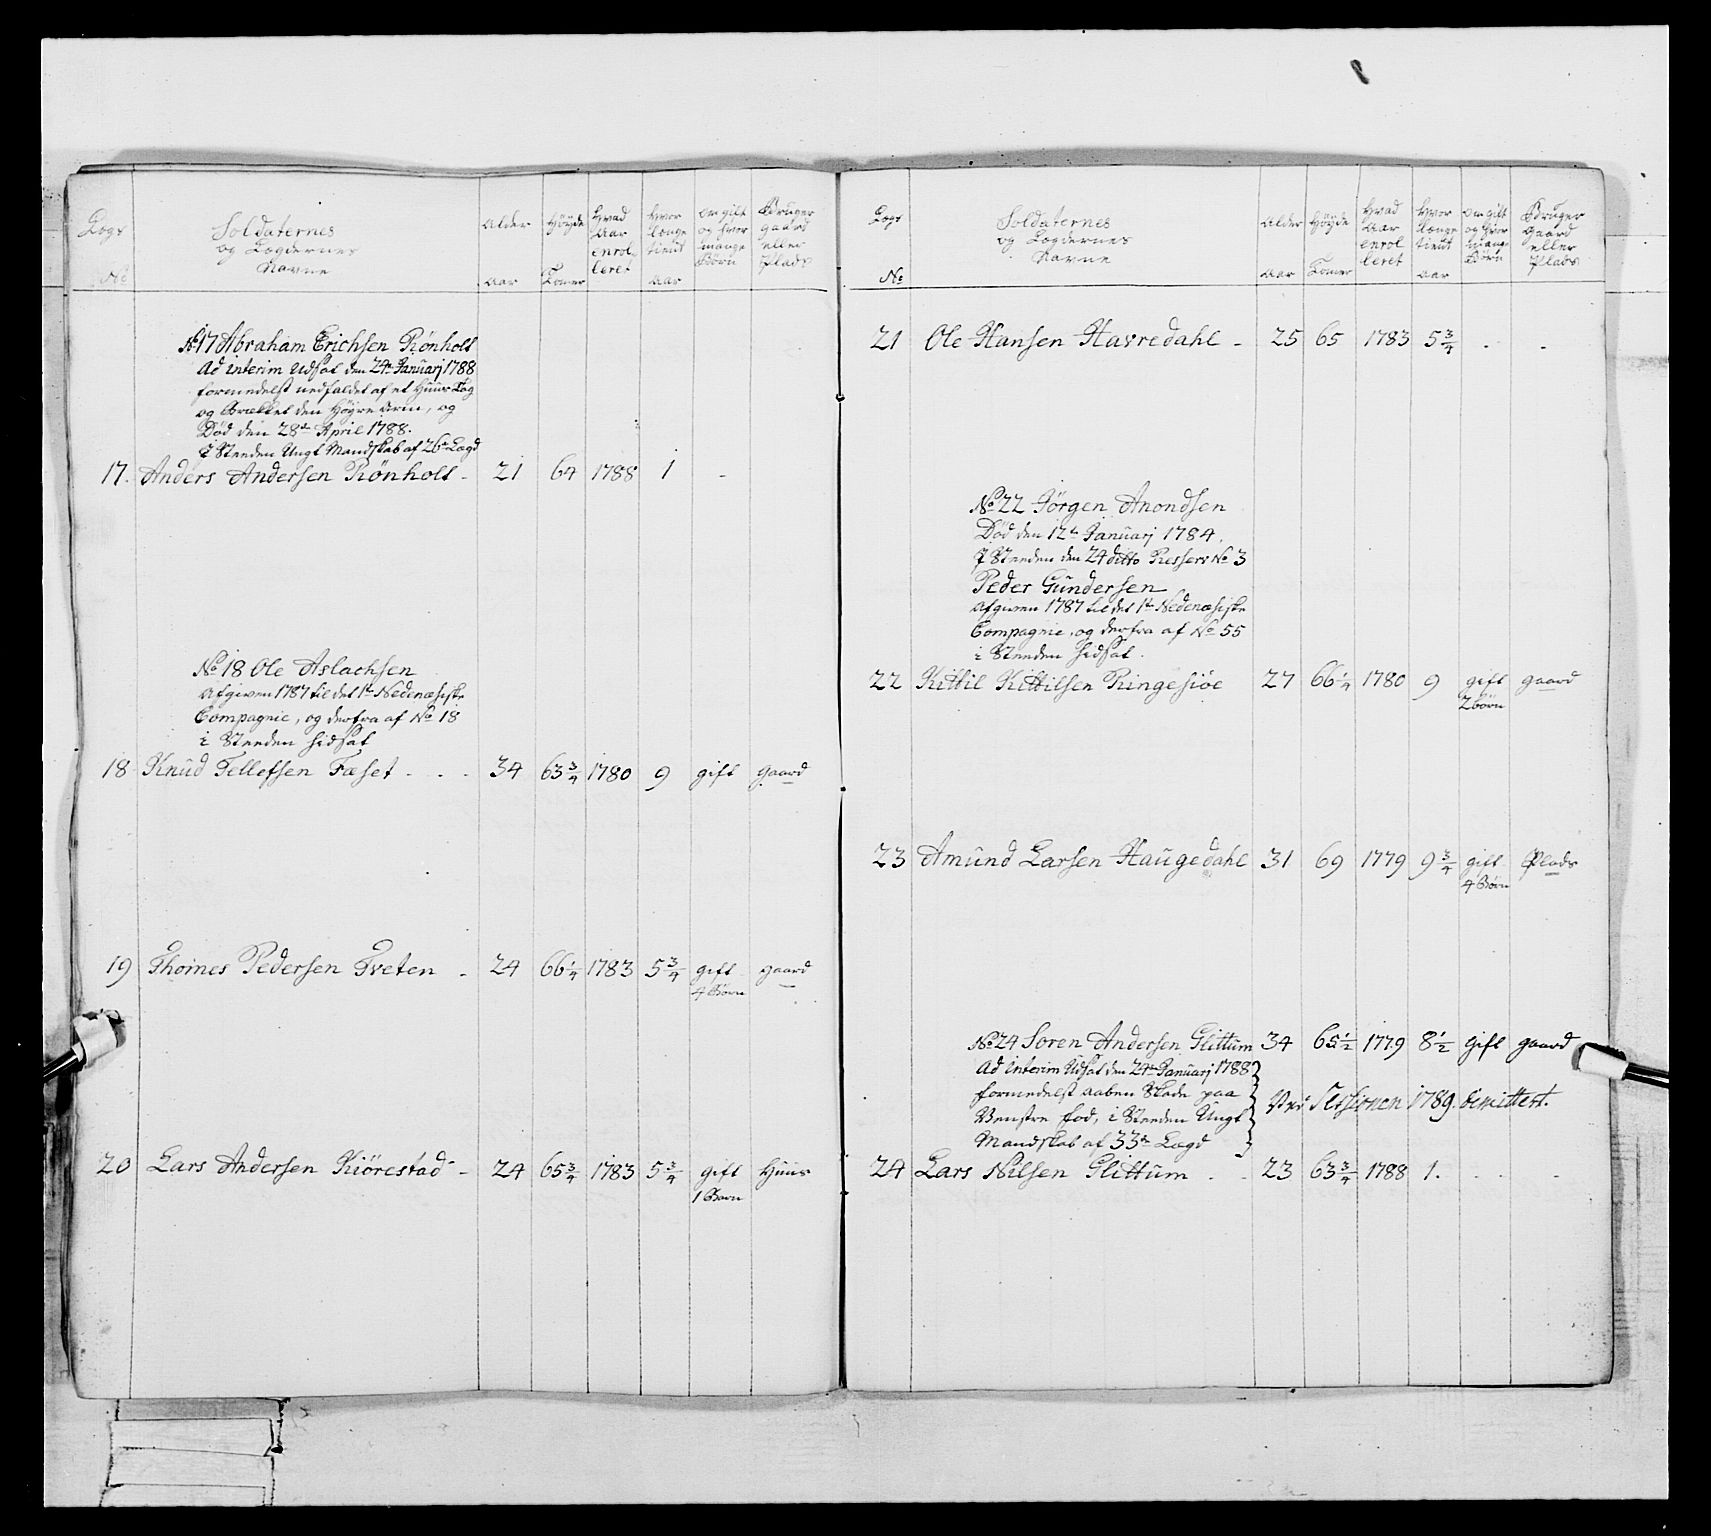 Legs No
Soldaternes og Legdernes Navne
Alder Aar
Høyde Tomer
Hvad Aar enrolleret
Hvor længe tient Aar
om gift og hvor mange Børn
Bruger Gaard eller Plads
No 17 Abraham Erichsen Rönholt
Ad interim Udsat den 24de Januarj 1788
formedelst nedfaldet af et Huus Tag
og Brækket den Høyre Arm, og
Död den 28de April 1788.
I Steeden Ungt Mandskab af 26de Lægd
17. Anders Andersen Rönholt - 21 64 1788 1 -
No 18 Ole Aslachsen
Afgiven 1787 til det 1te Nedenæsiske
Compagnie, og derfra af No 18
i Steeden hidsat
18 Knud Tellefsen Fæset - - - 34 63 3/4 1780 9 gift gaard
19 Thomes Pedersen Tveten - 24 66 1/4 1783 5 3/4 gift gaard
4 Børn
20 Lars Andersen Kiörestad - 24 65 3/4 1783 5 3/4 gift Huus
1 Barn
Legs No
Soldaternes og Legdernes Navne
Alder Aar
Høyde Tomer
Hvad Aar enrolleret
Hvor længe tient Aar
om gift og hvor mange Børn
Bruger Gaard eller Plads
21 Ole Hansen Havredahl - 25 65 1783 5 3/4 - -
No 22 Jörgen Anondsen
Död den 12te Januarj 1784.
I Steeden den 24 ditto Reserv No 3
Peder Gundersen
Afgiven 1787 til det 1te Nedenæsiske
Compagnie, og derfra af No 55
i Steeden hidsat.
22 Kittil Kittilsen Ringesiöe 27 66 1/4 1780 9 gift gaard
2 börn
23 Amund Larsen Haugedahl 31 69 1779 9 3/4 gift Plads
4 Børn
No 24 Soren Andersen Glittum 34 65 1/2 1779 8 1/2 gift gaard
Ad interim Udsat den 24de Januarj 1788
formedelst aaben Skade paa
Venstre fod, i Steeden Ungt
Mandskab af 33te Lægd
Ved Sessionen 1789. demittert.
24 Lars Nilsen Glittum - - 23 63 3/4 1788 1. - - -